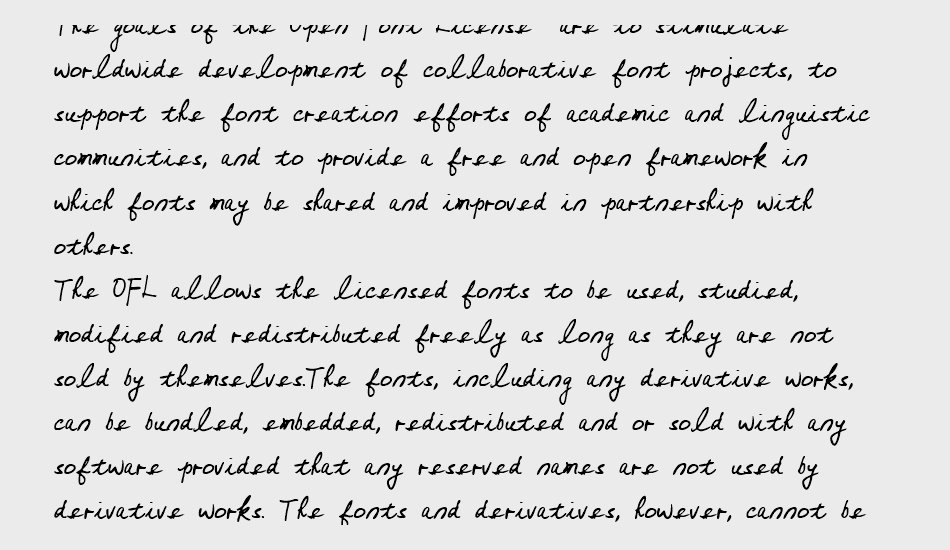 The goals of the Open Font License are to stimulate
worldwide development of collaborative font projects, to
support the font creation efforts of academic and linguistic
communities, and to provide a free and open framework in
which fonts may be shared and improved in partnership with
others.
The OFL allows the licensed fonts to be used, studied,
modified and redistributed freely as long as they are not
sold by themselves.The fonts, including any derivative works,
can be bundled, embedded, redistributed and or sold with any
software provided that any reserved names are not used by
derivative works. The fonts and derivatives, however, cannot be